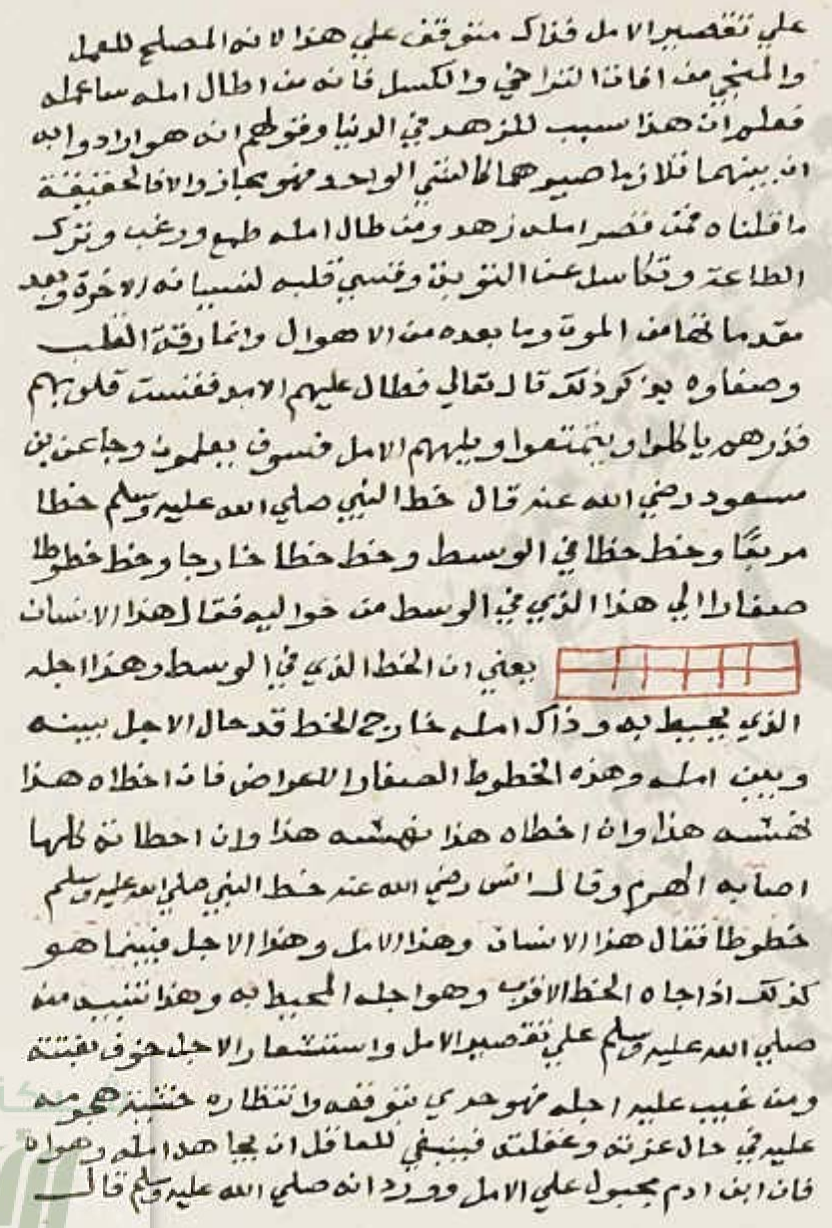 علي تقصير الامل فذاك متوقف علي هذا لانه المصلح للعمل
والمنجي من افات التراخي والكسل فانه من اطال امله ساعمله
فعلم ان هذا سبب للزهد في الدنيا وقولهم انه هو ارادوا به
ان بينهما تلازما صيرهما كالشي الواحد فهو مجاز والا فالحقيقة
ما قلناه فمن قصر امله زهد ومن طال امله طمع ورغب وترك
الطاعة وتكاسل عن التوبة وقسي قلبه لنسيانه الاخرة وبعد
مقدماتها من الموت وما بعده من الاهوال وانما رقة القلب
وصفاوه بذكر ذلك قال تعالي فطال عليهم الامد فقست قلوبهم
فذرهم ياكلوا ويتمتعوا ويلههم الامل فسوف يعلمون وجا عن بن
مسعود رضي الله عنه قال خط النبي صلي الله عليه وسلم خطا
مربعا وخط خطا في الوسط وخط خطا خارجا وخط خطوطا
صغارا الي هذا الذي في الوسط من حواليه فقال هذا الانسان
يعني ان الخط الذي في الوسط وهذا اجله
الذي يحيط به وذاك امله خارج الخط قد حال الاجل بينه
وبين امله وهذه الخطوط الصغار الاعراض فان اخطاه هذا
نهشه هذا وان اخطاه هذا نهشه هذا وان اخطاته كلها
اصابه الهرم وقال انس رضي الله عنه خط النبي صلي الله عليه وسلم
خطوطا فقال هذا الانسان وهذا الامل وهذا الاجل فبينما هو
كذلك اذا جاه الخط الاقرب وهو اجله المحيط به وهذا تنبيه منه
صلي الله عليه وسلم علي تقصير الامل واستشعار الاجل خوف بغتته
ومن غيب عليه اجله فهو حري بتوقعه وانتظاره خشية هجومه
عليه في حال غرته وغفلته فينبغي للعاقل ان يجاهد امله وهواه
فان ابن ادم مجبول علي الامل وورد انه صلي الله عليه وسلم قال